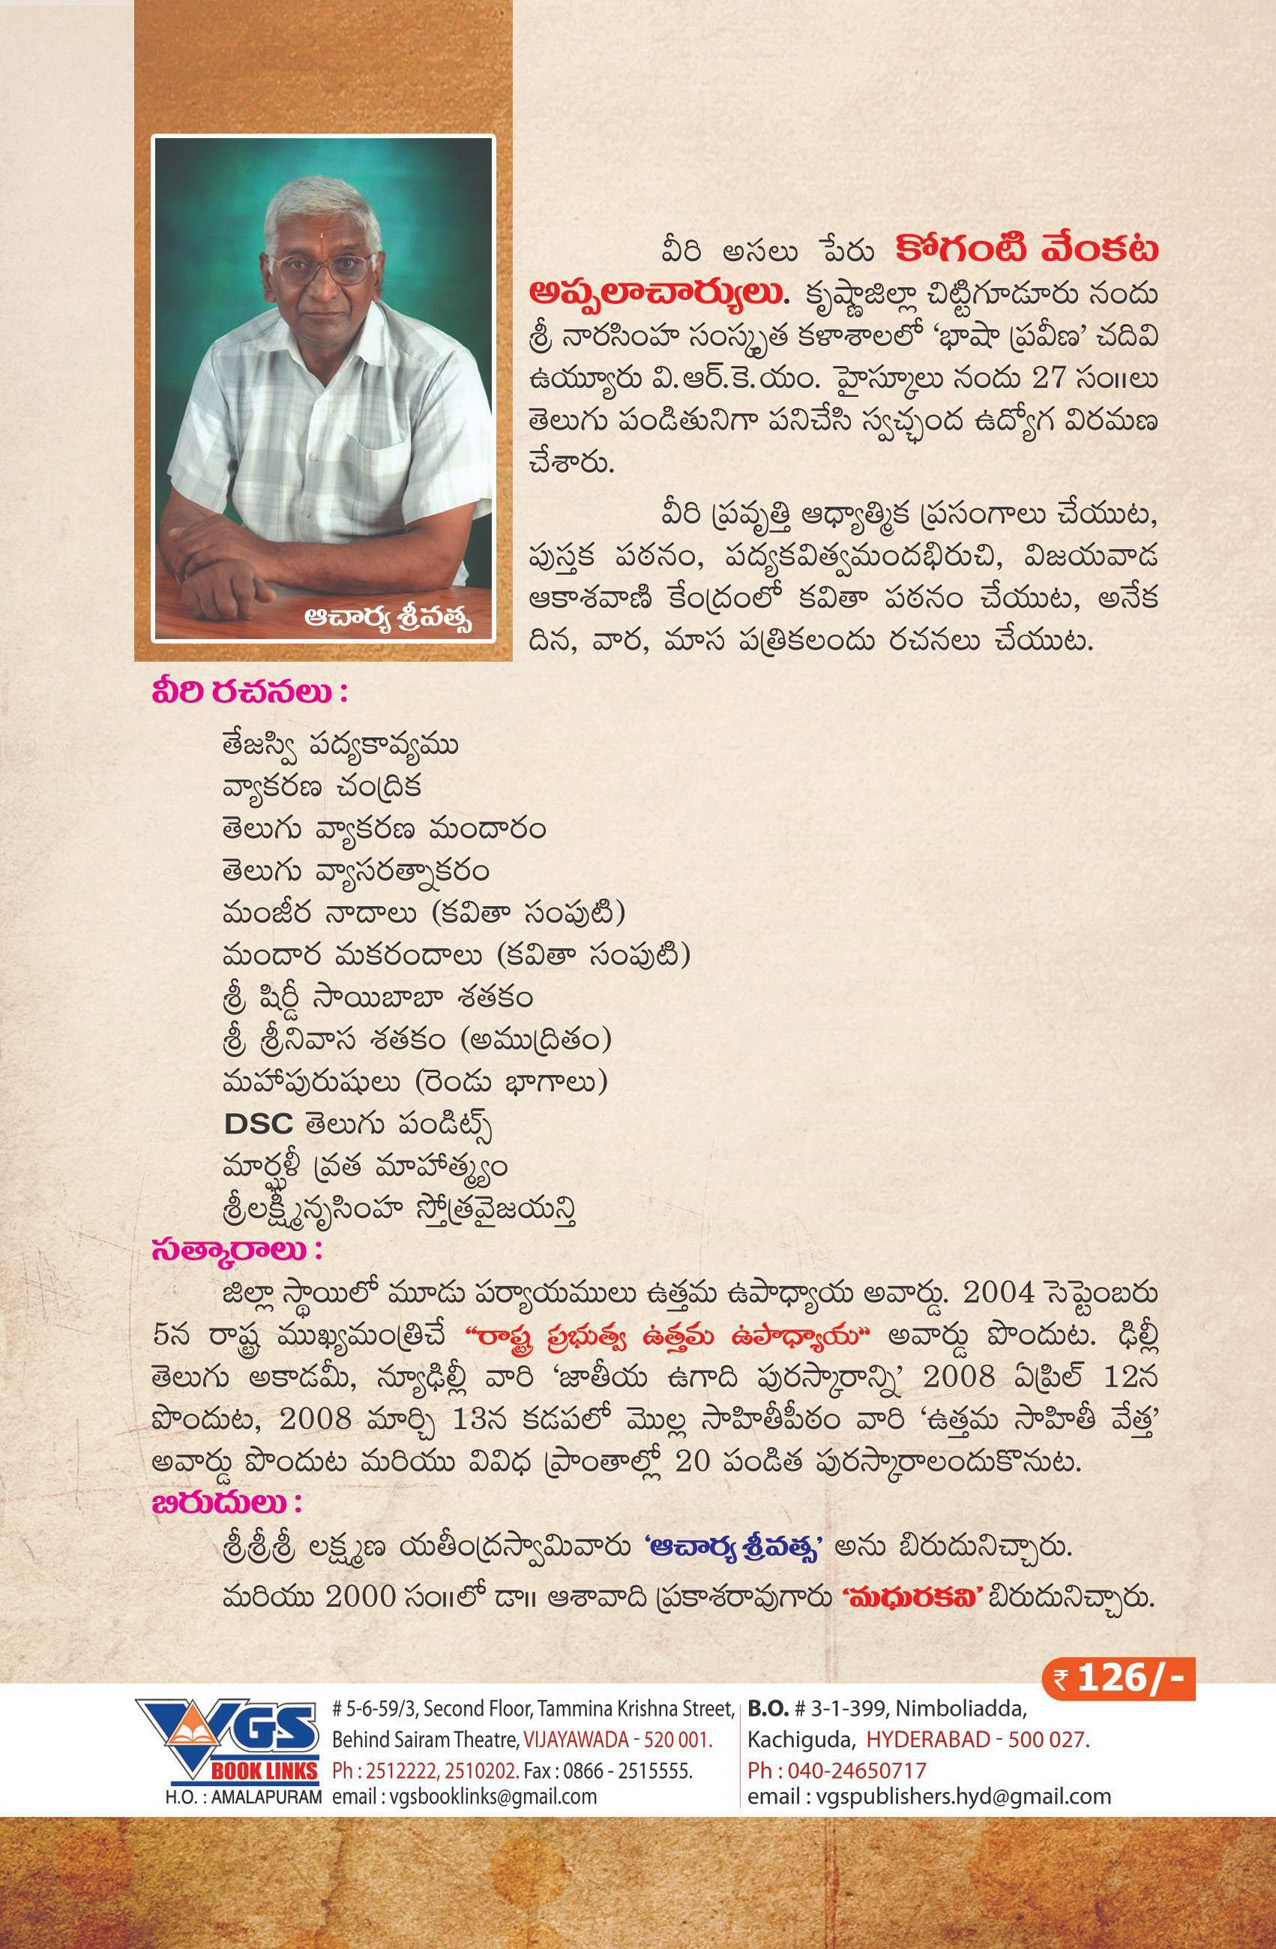 వీరి అసలు పేరు కోగంటి వేంకట
అప్పలాచార్యులు. కృష్ణాజిల్లా చిట్టిగూడూరు నందు
శ్రీ నారసింహ సంస్కృత కళాశాలలో ‘భాషా ప్రవీణ’ చదివి
ఉయ్యూరు వి.ఆర్.కె.యం. హైస్కూలు నందు 27 సం॥లు
తెలుగు పండితునిగా పనిచేసి స్వచ్ఛంద ఉద్యోగ విరమణ
చేశారు.
వీరి ప్రవృత్తి ఆధ్యాత్మిక ప్రసంగాలు చేయుట,
పుస్తక పఠనం, పద్యకవిత్వమందభిరుచి, విజయవాడ
ఆకాశవాణి కేంద్రంలో కవితా పఠనం చేయుట, అనేక
దిన, వార, మాస పత్రికలందు రచనలు చేయుట.
ఆచార్య శ్రీవత్స
వీరి రచనలు :
తేజస్వి పద్యకావ్యము
వ్యాకరణ చంద్రిక
తెలుగు వ్యాకరణ మందారం
తెలుగు వ్యాసరత్నాకరం
మంజీర నాదాలు (కవితా సంపుటి)
మందార మకరందాలు (కవితా సంపుటి)
శ్రీ షిర్డీ సాయిబాబా శతకం
శ్రీ శ్రీనివాస శతకం (అముద్రితం)
మహాపురుషులు (రెండు భాగాలు)
DSC తెలుగు పండిట్స్
మార్ఘళీ వ్రత మాహాత్మ్యం
శ్రీలక్ష్మీనృసింహ స్తోత్రవైజయన్తి
సత్కారాలు :
జిల్లా స్థాయిలో మూడు పర్యాయములు ఉత్తమ ఉపాధ్యాయ అవార్డు. 2004 సెప్టెంబరు
5న రాష్ట్ర ముఖ్యమంత్రిచే “రాష్ట్ర ప్రభుత్వ ఉత్తమ ఉపాధ్యాయ” అవార్డు పొందుట. ఢిల్లీ
తెలుగు అకాడమీ, న్యూఢిల్లీ వారి ‘జాతీయ ఉగాది పురస్కారాన్ని’ 2008 ఏప్రిల్ 12న
పొందుట, 2008 మార్చి 13న కడపలో మొల్ల సాహితీపీఠం వారి ‘ఉత్తమ సాహితీ వేత్త’
అవార్డు పొందుట మరియు వివిధ ప్రాంతాల్లో 20 పండిత పురస్కారాలందుకొనుట.
బిరుదులు :
శ్రీశ్రీశ్రీ లక్ష్మణ యతీంద్రస్వామివారు ‘ఆచార్య శ్రీవత్స’ అను బిరుదునిచ్చారు.
మరియు 2000 సం॥లో డా॥ ఆశావాది ప్రకాశరావుగారు ‘మధురకవి’ బిరుదునిచ్చారు.
₹ 126/-
VGS
BOOK LINKS
H.O. : AMALAPURAM
# 5-6-59/3, Second Floor, Tammina Krishna Street,
Behind Sairam Theatre, VIJAYAWADA - 520 001.
Ph : 2512222, 2510202. Fax : 0866 - 2515555.
email : vgsbooklinks@gmail.com
B.O. # 3-1-399, Nimboliadda,
Kachiguda, HYDERABAD - 500 027.
Ph : 040-24650717
email : vgspublishers.hyd@gmail.com